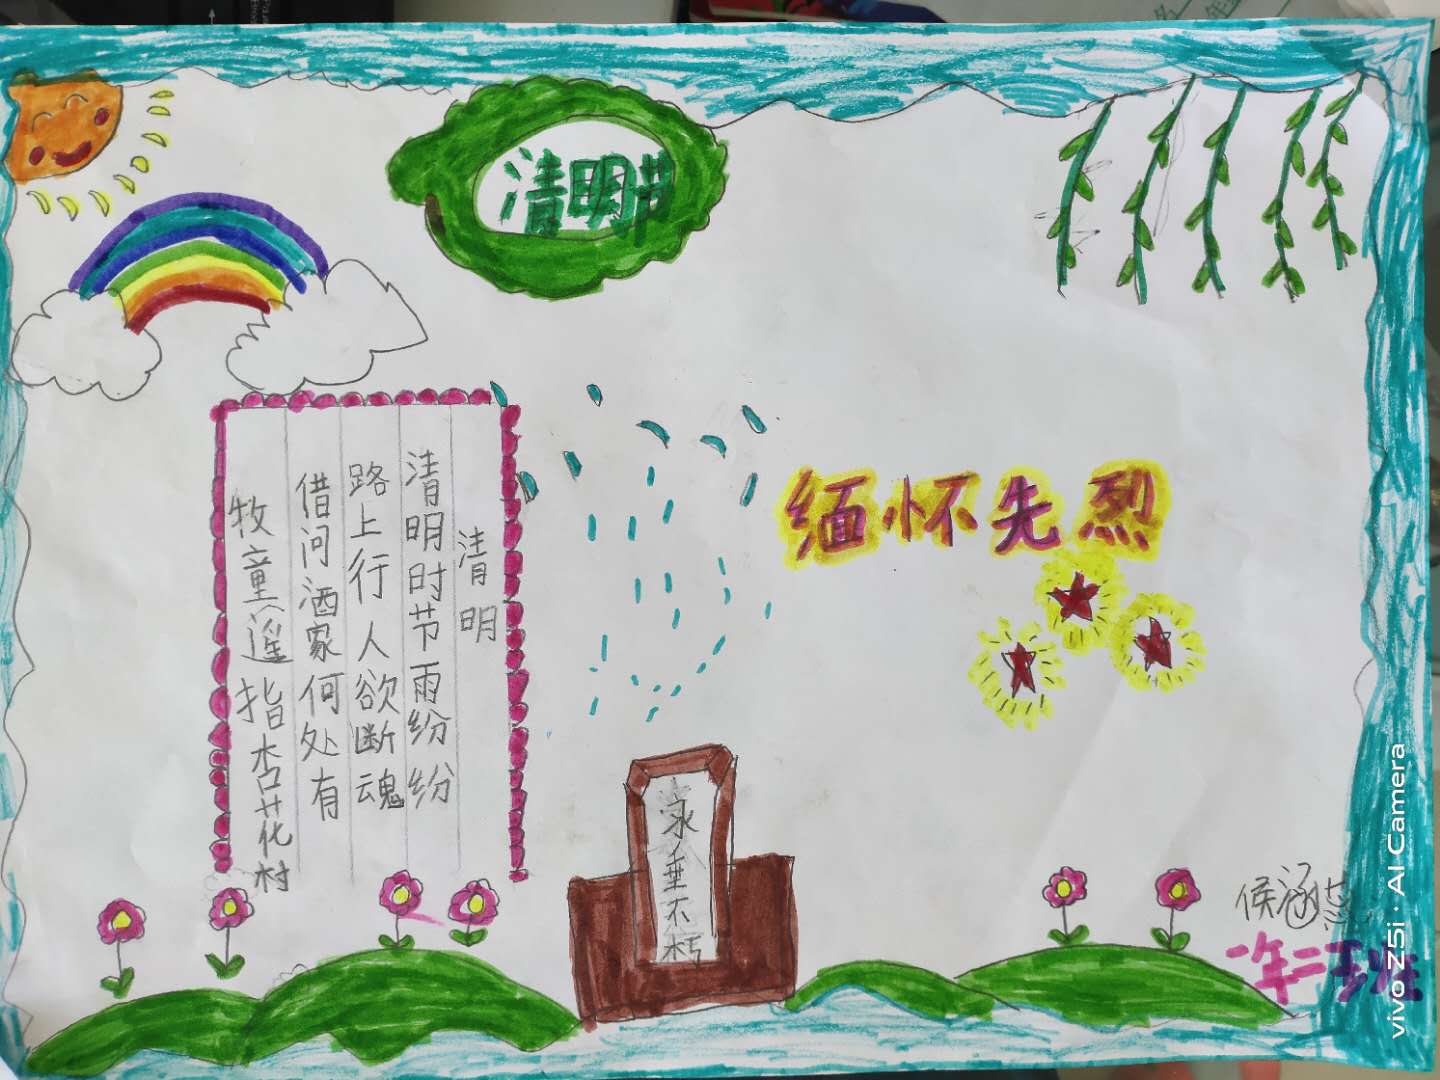 清明节
清明
清明时节雨纷纷
路上行人欲断魂
借问酒家何处有
牧童遥指杏花村
缅怀先烈
永垂不朽
侯涵
一年二班
vivo Z5i · AI Camera